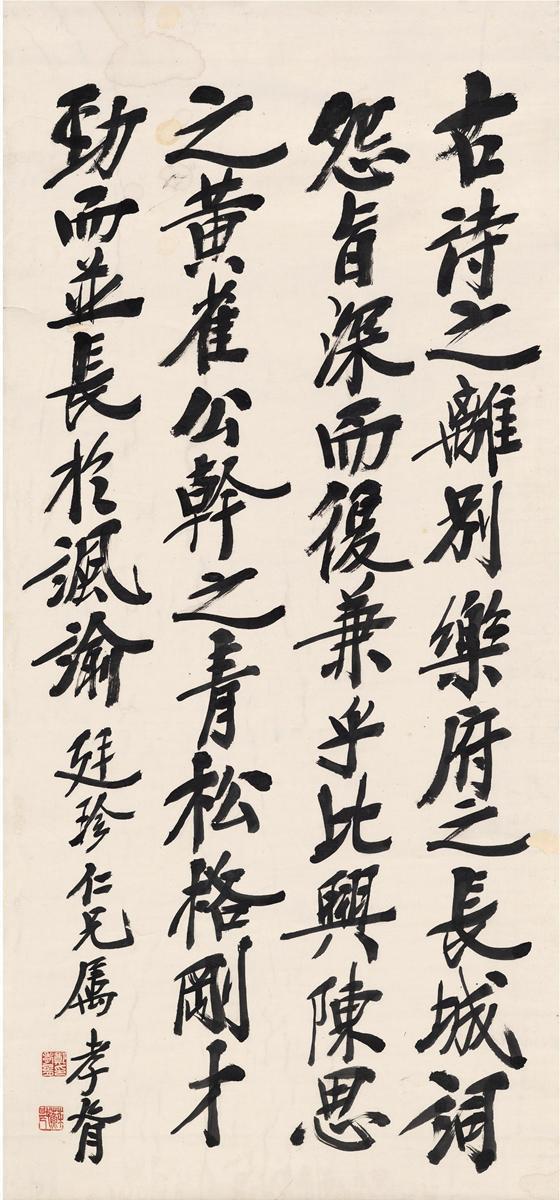 古詩之離別樂府之長城詞
怨旨深而復兼乎比興陳思
之黃雀公幹之青松格剛才
勁而並長於諷諭
廷珍仁兄屬 孝胥